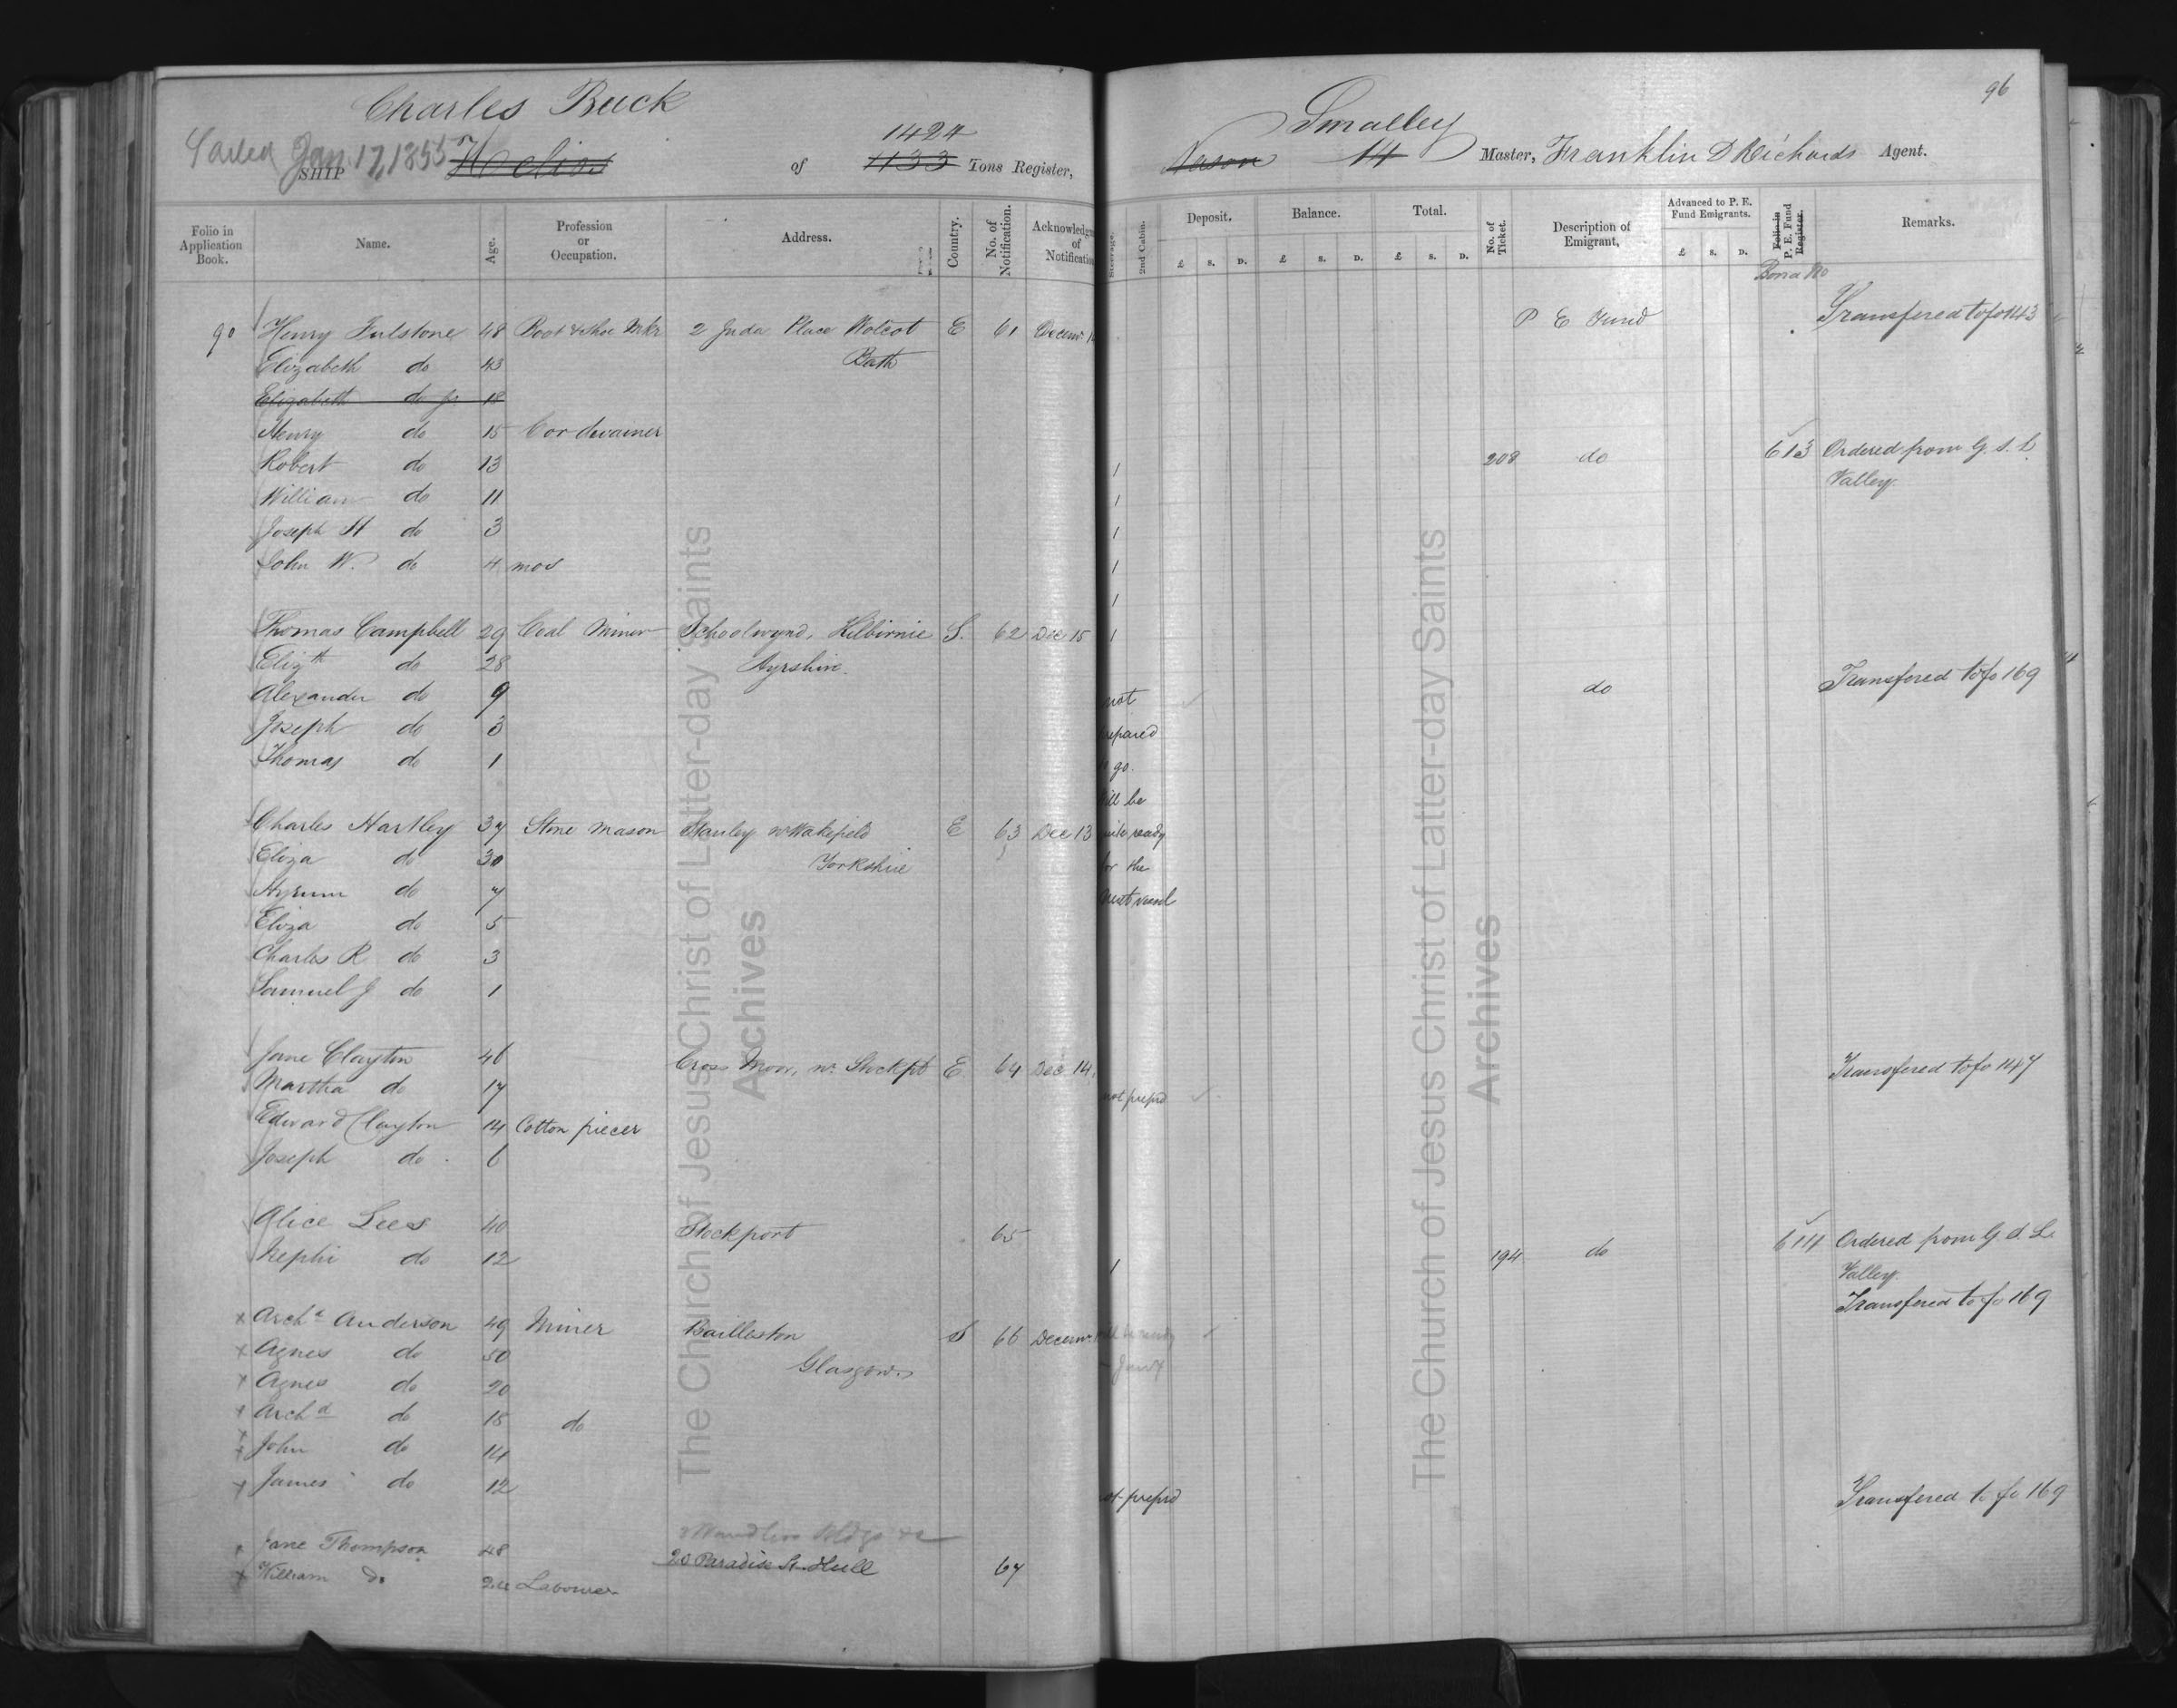 Charles Buck
Sailed Jan. 17, 1855
SHIP Helios of 1424 1133 Tons Register,
Folio in Application Book. Name. Age. Profession or Occupation. Address. Country. No. of Notification. Acknowledgm of Notification
90 Henry Fulstone 48 Boot & Shoe Mkr 2 Juda Place Wolcot E 61 Decemr 14
Elizabeth do 43 Bath
Elizabeth do jr. 18
Henry do 15 Cordwainer
Robert do 13
William do 11
Joseph H do 3
John W. do 4 mos
Thomas Campbell 29 Coal Miner Schoolwynd, Kilbirnie S. 62 Dec 15
Elizth do 28 Ayrshire.
Alexander do 9
Joseph do 3
Thomas do 1
Charles Hartley 37 Stone Mason Stanley nr Wakefield E 63 Dec 13
Eliza do 30 Yorkshire
Hyrum do 7
Eliza do 5
Charles R do 3
Samuel J do 1
Jane Clayton 46 Cross Moor, nr. Stockpt E. 64 Dec 14.
Martha do 17
Edward Clayton 14 Cotton piecer
Joseph do 6
Alice Lees 40 Stockport 65
Nephi do 12
x Archd Anderson 49 Miner Bailleston S 66 Decemr.
x Agnes do 50 Glasgow.
x Agnes do 20
x Archd do 18 do
x John do 14
x James do 12
x Jane Thompson 48 20 Paradise St. Hull 67
x William Do 24 Labourer
96
Smalley
Nason 14 Master, Franklin D Richards Agent.
Steerage. 2nd Cabin. Deposit. Balance. Total. No. of Ticket. Description of Emigrant, Advanced to P. E. Fund Emigrants. Folio in P. E. Fund Register. Remarks.
£ S. D. £ S. D. £ S. D. £ S. D.
Bond No
P E Fund Transfered to fo 143
1 208 do 613 Ordered from G. S. L.
1 Valley.
1
1
1
1
not do Transfered to fo 169
repared
go.
ill be
ready
for the
next vessel
Transfered to fo 147
not preprd
1 194 do 614 Ordered from G. S. L.
Valley.
Transfered to fo 169
ot preprd Transfered to fo 169
The Church of Jesus Christ of Latter-day Saints
Archives
The Church of Jesus Christ of Latter-day Saints
Archives